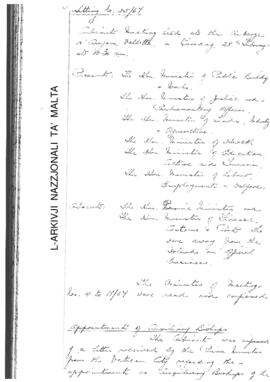 Sitting No. 25/67
Cabinet Meeting held at the Auberge
d'Aragon, Valletta on Tuesday 28th February
at
Present: The Hon. Minister of Public Building
& Works.
The Hon. Minister of Justice and
Parliamentary Affairs
The Hon. Minister of Trade, Industry
& Agriculture
The Hon. Minister of Health
The Hon. Minister of Education,
Culture and Tourism
The Hon. Minister of Labour
Employment & Welfare.
Absent: The Hon. Prime Minister and
The Hon. Minister of Finance,
Customs & Port who
were away from the
Island on official
business.
The Minutes of Meetings
Nos. to were read and confirmed.
Appointment of Auxiliary Bishops
The Cabinet was informed
of a letter received by the Prime Minister
from the Vatican City regarding the
appointments as Auxiliary Bishops of the
L-ARKIVJI NAZZJONALI TA' MALTA